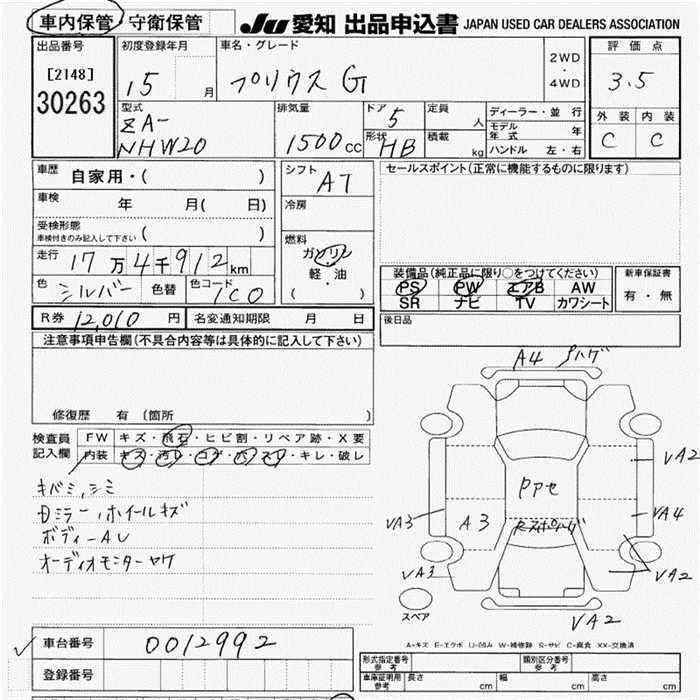 車内保管・守衛保管
JU 愛知 出品申込書 JAPAN USED CAR DEALERS ASSOCIATION
出品番号
[2148]
30263
初度登録年月
15 月
車名・グレード
プリウス G
2WD
・
4WD
評価点
3.5
外装 内装
C C
型式
ZA-
NHW20
排気量
1500 cc
ドア 5
形状 HB
定員 人
積載 kg
ディーラー・並行
モデル年式 年
ハンドル 左・右
車歴 自家用・( )
車検 年 月( 日)
受検形態
車検付きのみ記入して下さい ( )
走行 17万4千912km
色 シルバー 色替 色コード 1C0
シフト AT
冷房
燃料
ガソリン
軽・油
( )
セールスポイント(正常に機能するものに限ります)
装備品(純正品に限り○をつけてください)
PS PW エアB AW
SR ナビ TV カワシート
新車保証書
有・無
R券 12,010 円 名変通知期限 月 日
後日品
注意事項申告欄(不具合内容等は具体的に記入して下さい)
修復歴 有 〔箇所 〕
検査員記入欄
FW キズ・飛石・ヒビ割・リペア跡・X要
内装 キズ・汚レ・コゲ・穴・スレ・キレ・破レ
キバミ,シミ
Dミラー,ホイールキズ
ボディーAU
オーディオモニターヤケ
A4 ハゲ
VA2
PPセ
VA3
A3
VA4
VA3
VA2
スペア
VA2
A-キズ E-エクボ U-凹み W-補修跡 S-サビ C-腐食 XX-交換済
車台番号 0012992
登録番号
形式指定番号 参考
類別区分番号 参考
車庫証明用 参考
長さ cm 幅 cm 高さ cm